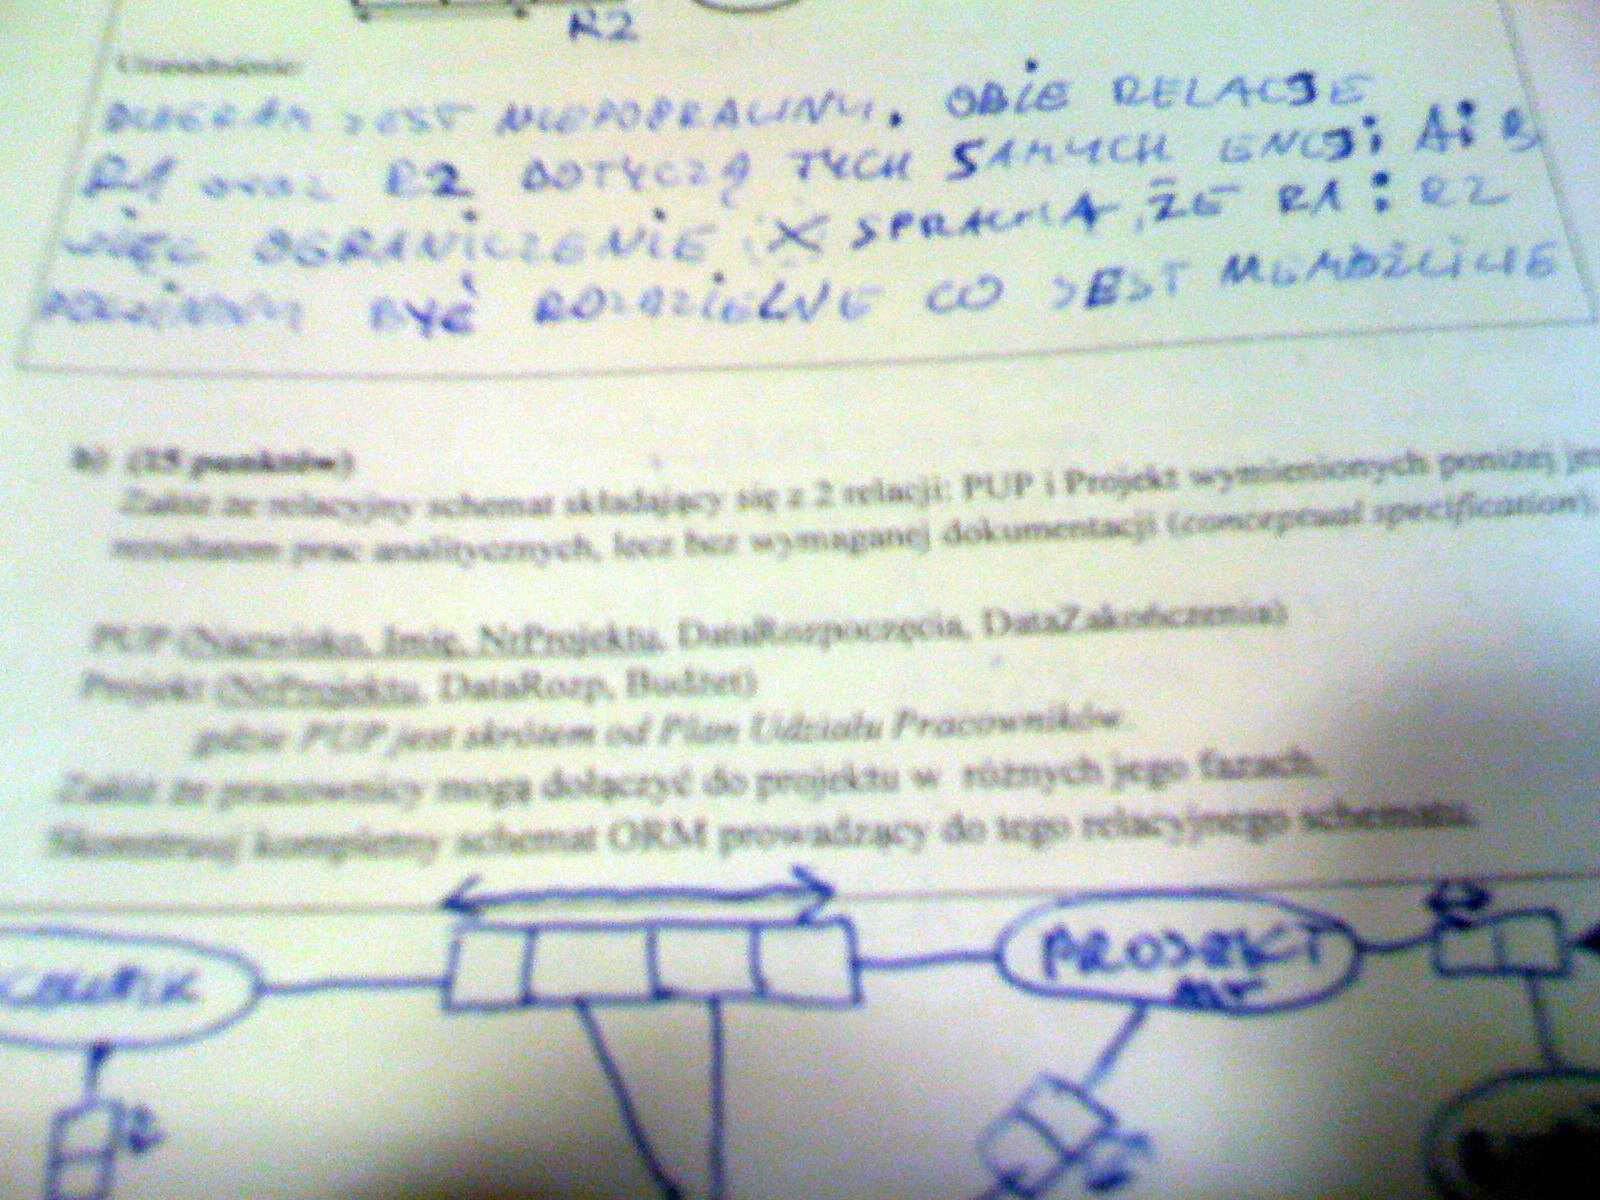 R2
Uzasadnienie:
DIAGRAM JEST NIEPOPRAWNY. OBIE RELACJE
R1 oraz R2 DOTYCZĄ TYCH SAMYCH ENCJI A i B
WIĘC OGRANICZENIE X SPRAWIA, ŻE R1 i R2
POWINNY BYĆ ROZDZIELNE CO JEST NIEMOŻLIWE
b) (15 punktów)
Załóż że relacyjny schemat składający się z 2 relacji: PUP i Projekt wymienionych poniżej jes
rezultatem prac analitycznych, lecz bez wymaganej dokumentacji (conceptual specification).
PUP (Nazwisko, Imię, NrProjektu, DataRozpoczęcia, DataZakończenia)
Projekt (NrProjektu, DataRozp, Budżet)
gdzie PUP jest skrótem od Plan Udziału Pracowników.
Załóż że pracownicy mogą dołączyć do projektu w różnych jego fazach.
Skonstruuj kompletny schemat ORM prowadzący do tego relacyjnego schematu.
PROJEKT
nr